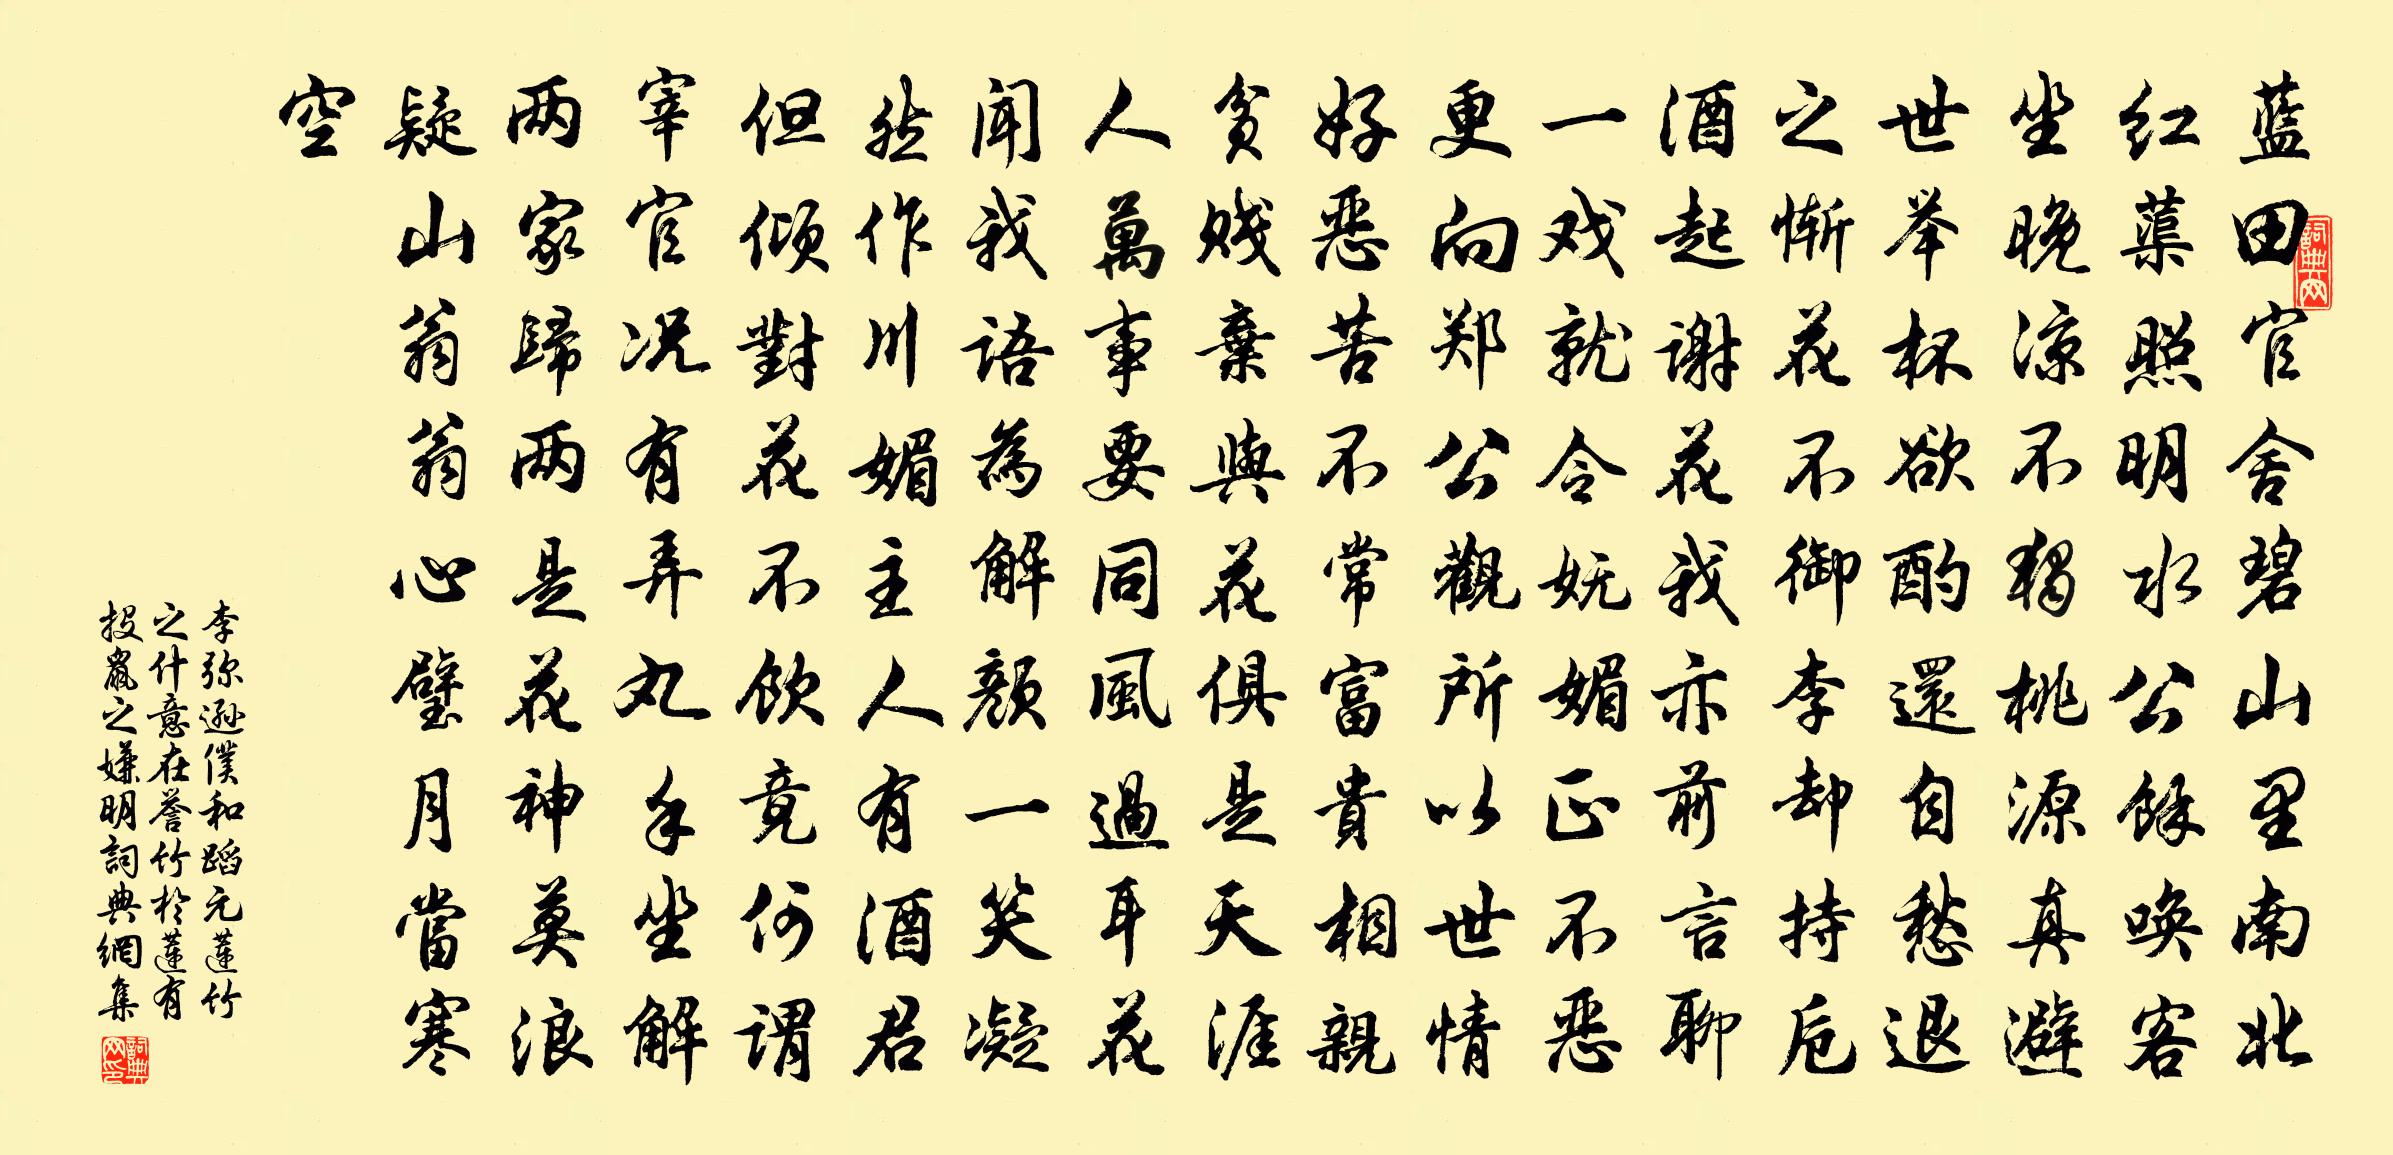 藍田官舍碧山里南北
红蕖照明水公餘唤客
坐晚凉不独桃源真避
世举杯欲酌還自愁退
之惭花不御李却持卮
酒起谢花我亦前言聊
一戏就令妩媚正不恶
更向郑公觀所以世情
好恶苦不常富貴相親
贫贱棄與花俱是天涯
人萬事要同風過耳花
闻我语為解颜一笑凝
然作川媚主人有酒君
但倾對花不饮竟何谓
宰官况有弄丸手坐解
两家歸两是花神莫浪
疑山翁翁心璧月當寒
空
李弥逊僕和蹈元蓮竹
之什意在誉竹於蓮有
投鼠之嫌明詞典網集
詞典网
詞典网印